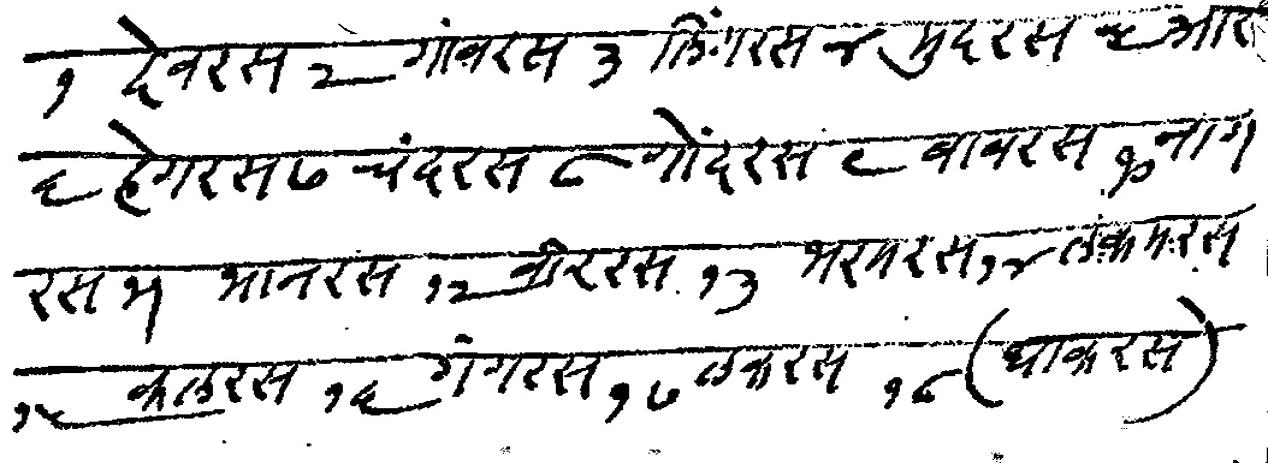 १ देवरस २ गांवरस ३ लिंगरस ४ मुदरस ५ आर
६ हेगरस ७ चंदरस ८ गोंदरस ९ वावरस १० नाग
रस ११ भानरस १२ वीररस १३ भरमरस १४ लकमरस
१५ कालरस १६ गंगरस १७ लकरस १८ (धाकरस)